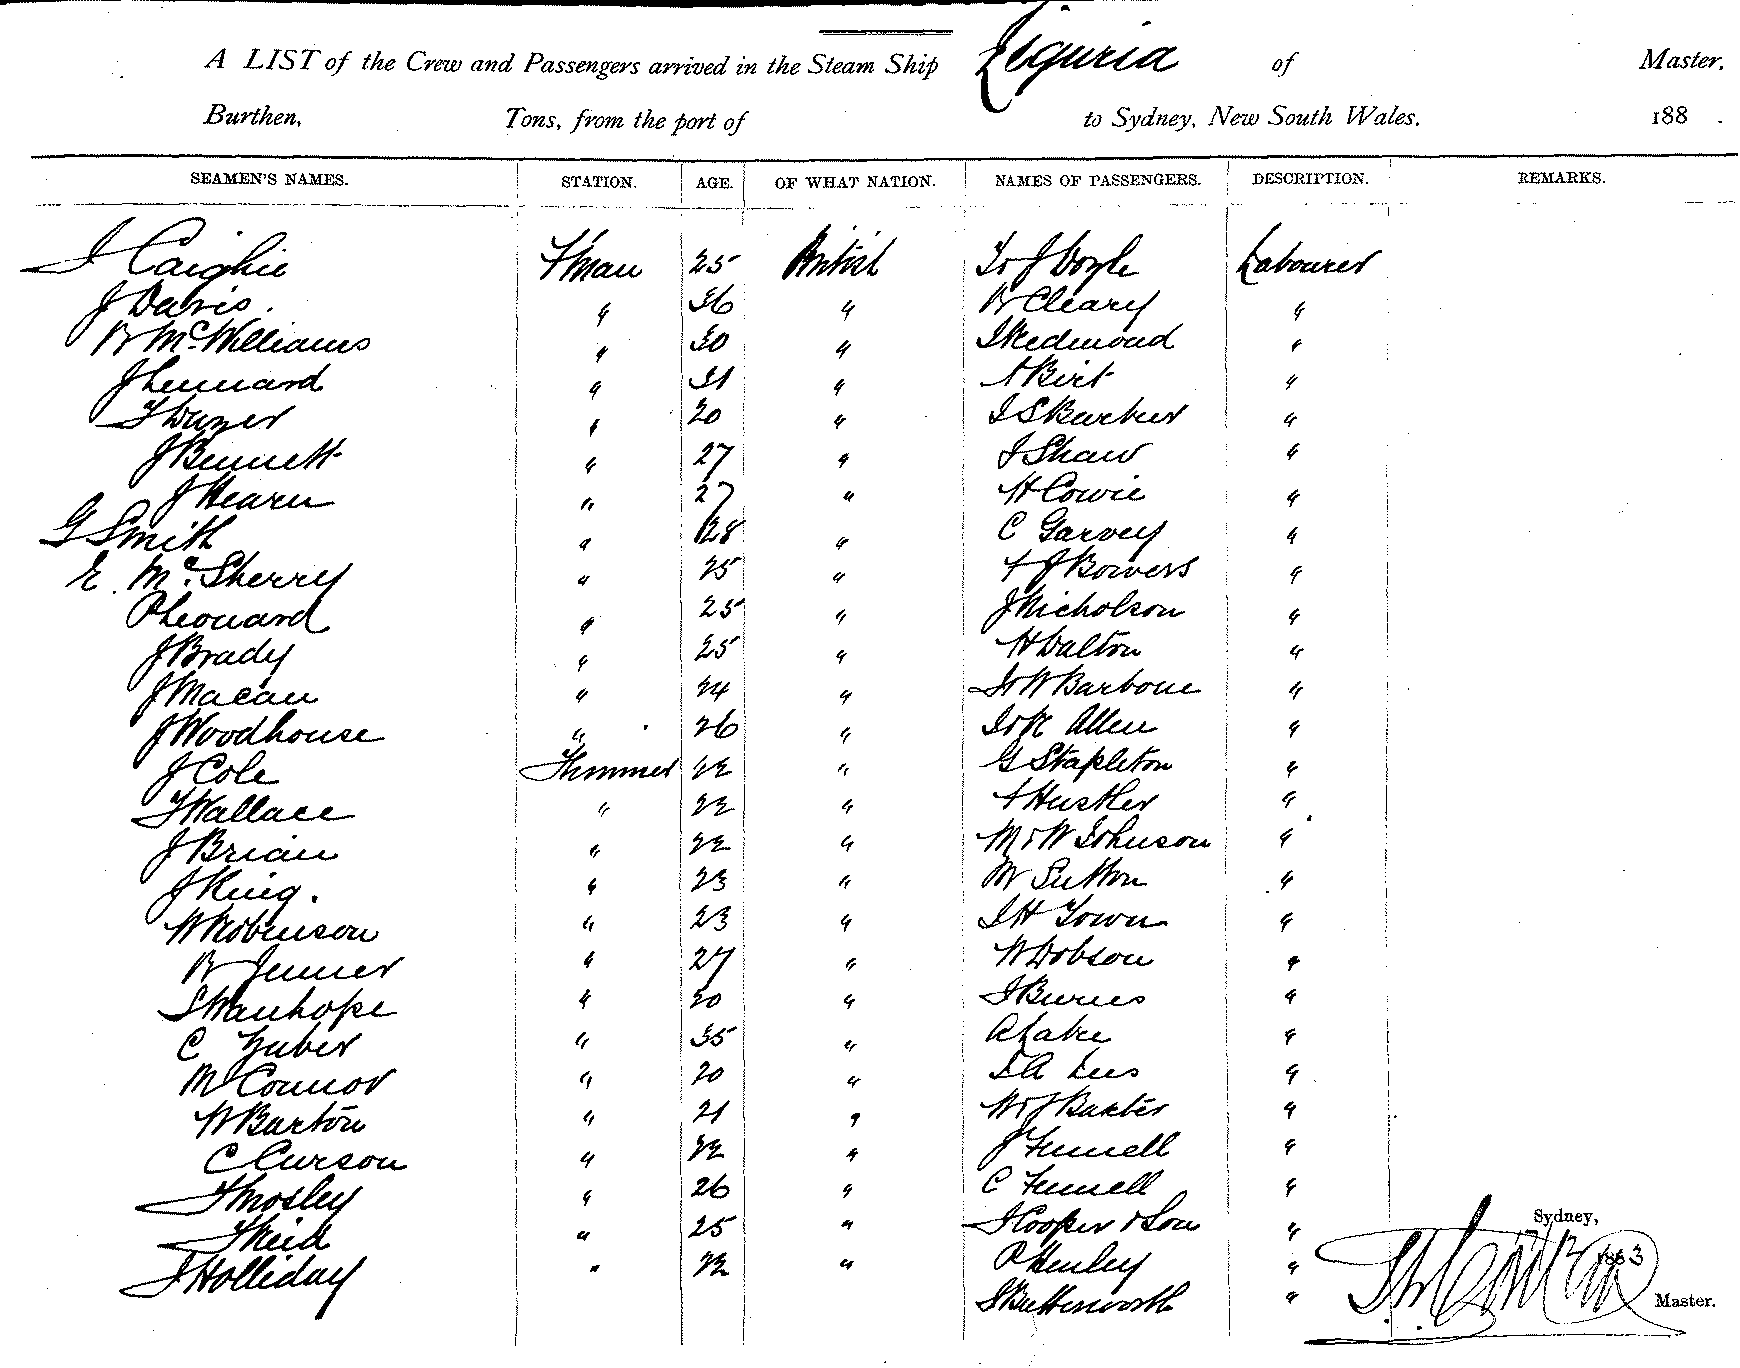 A LIST of the Crew and Passengers arrived in the Steam Ship Liguria of Master,
Burthen, Tons, from the port of to Sydney, New South Wales. 188 .
SEAMEN'S NAMES. STATION. AGE. OF WHAT NATION. NAMES OF PASSENGERS. DESCRIPTION. REMARKS.
J Caighie F'man 25 British J Doyle Labourer
J Davis. " 36 " Cleary "
R McWilliams " 30 " J Redmond "
J Lennard " 31 " A Birt "
F " 20 " J S Barber "
J Bennett " 27 " J Shaw "
J Hearn " 27 " H Cowie "
G Smith " 28 " C Garvey "
E. McSherry " 25 " J Bowers "
P Leonard " 25 " J Nicholson "
J Brady " 25 " H Dalton "
J Macan " 24 " W Barbour "
J Woodhouse " 26 " Allen "
J Cole Trimmer 22 " G Stapleton "
F Wallace " 22 " A Hustler "
J Brian " 22 " M & W Johnson "
J King. " 23 " W Sutton "
W Robinson " 23 " J H Town "
R Jenner " 27 " W Dobson "
S Wanhope " 20 " J Burnes "
C Huber " 35 " A Lake "
M Connor " 20 " J A Lees "
W Barton " 21 " W & J Baxter "
C Curson " 22 " J Fennell "
J Mosley " 26 " C Fennell "
J Reid " 25 " J Cooper & Son "
J Holliday " 22 " P Henley "
S Butterworth "
Sydney,
1883
Master.